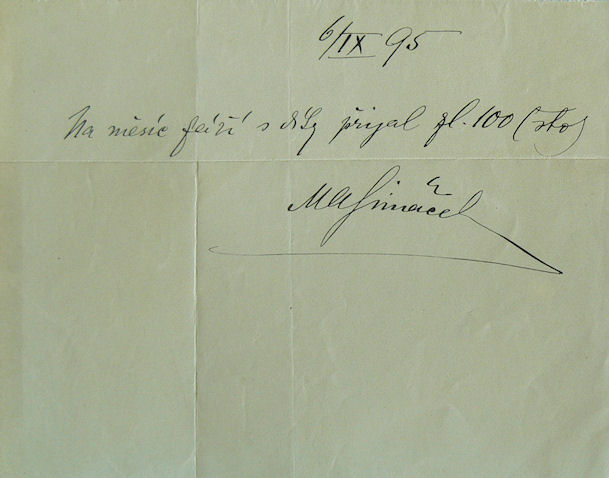 6/IX 95
Na měsíc září s díky přijal zl. 100 (sto)
MAŠimáček